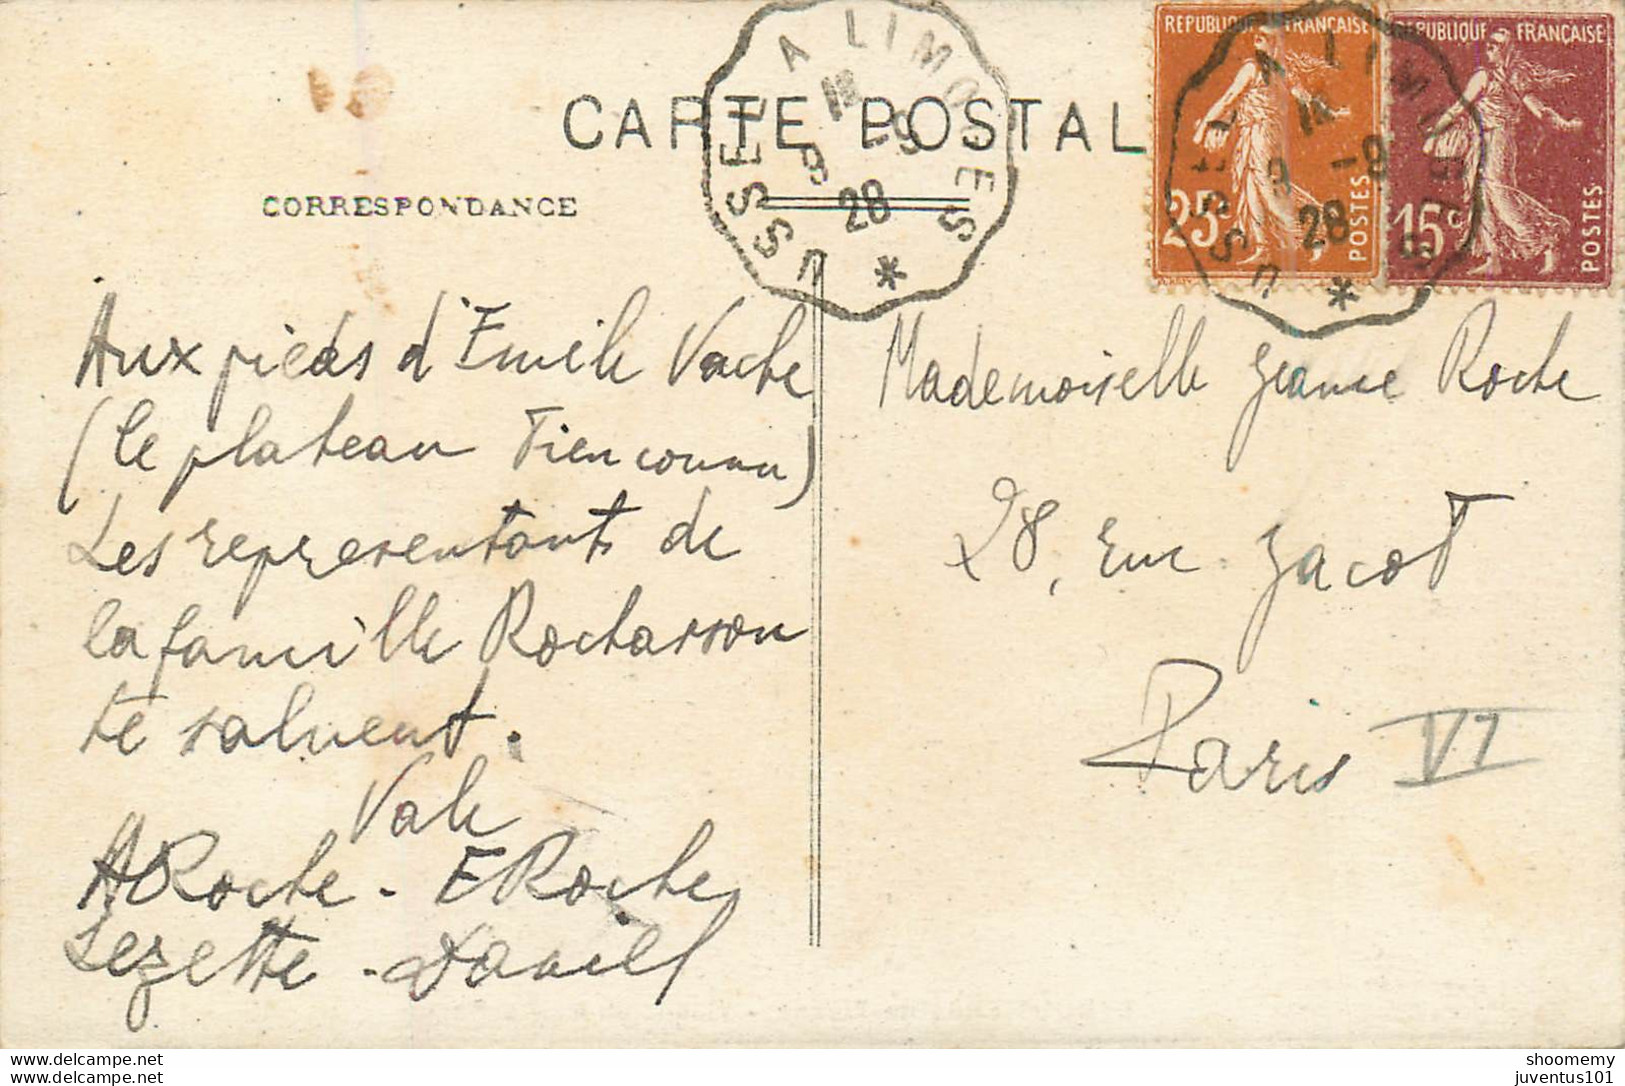 CARTE POSTAL
CORRESPONDANCE
USSEL A LIMOGES
9
-9
28
*
REPUBLIQUE FRANÇAISE
25c
POSTES
REPUBLIQUE FRANÇAISE
15c
POSTES
USSEL A LIMOGES
9
-9
28
*
Aux pieds d'Emile Vache
(le plateau
Les representants de
la famille Rocharson
te saluent.
Vale
ARoche - ERoche
Lezette - Daniel
Mademoiselle Jeanne Roche
28, rue Jacot
Paris VI
delcampe.net
delcampe.net
shoomemy
juventus101